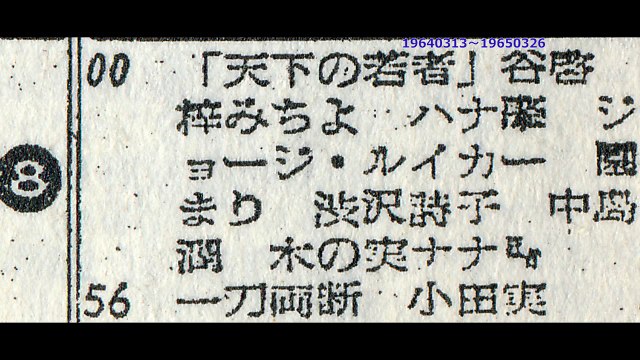 19640313~19650326
00 「天下の若者」谷啓
梓みちよ ハナ肇 ジ
ョージ・ルイカー 園
まり 渋沢詩子 中島
潤 木の実ナナ
8
56 一刀両断 小田実